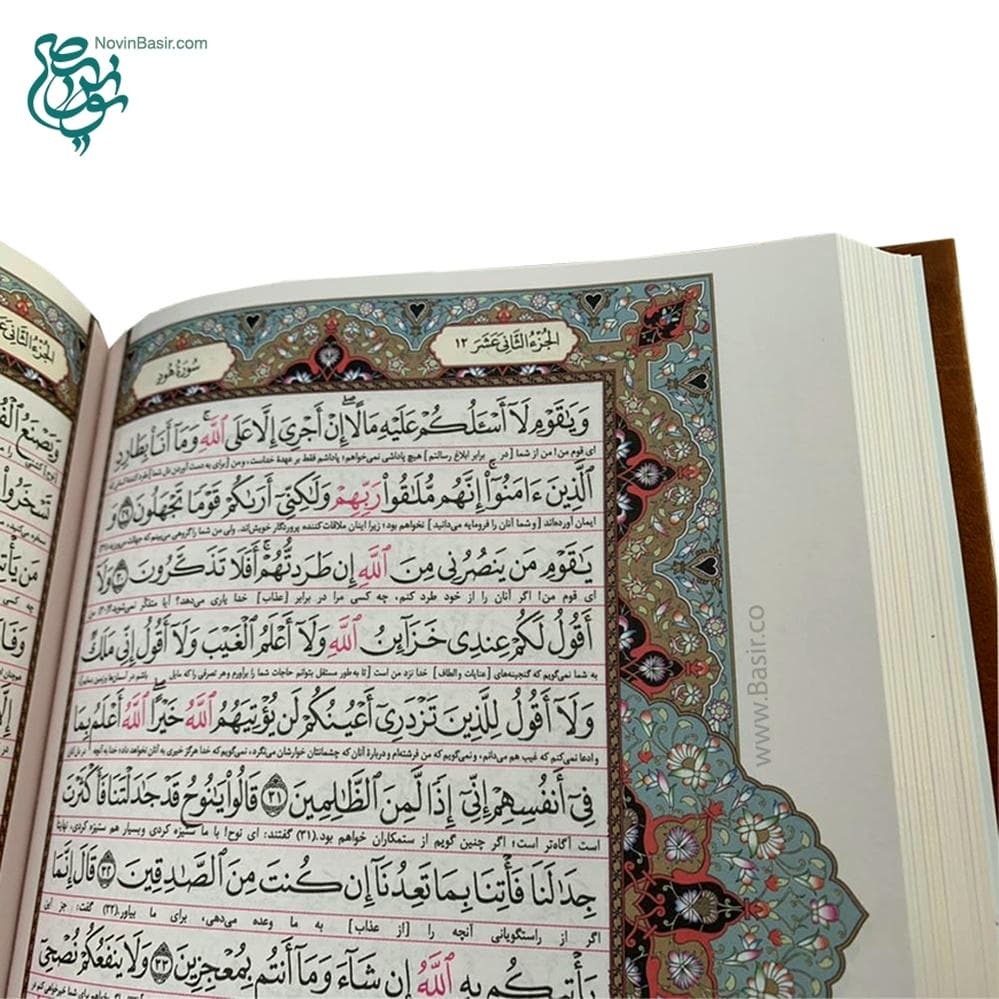 NovinBasir.com
الجزء الثانی عشر ۱۲
سورة هود
وَيَٰقَوْمِ لَآ أَسْـَٔلُكُمْ عَلَيْهِ مَالًا ۖ إِنْ أَجْرِىَ إِلَّا عَلَى ٱللَّهِ ۚ وَمَآ أَنَا۠ بِطَارِدِ
ای قوم من! من از شما [در برابر ابلاغ رسالتم] هیچ پاداشی نمی‌خواهم؛ پاداشم فقط بر عهدۀ خداست، و من [برای به دست آوردن دل شما]
ٱلَّذِينَ ءَامَنُوٓا۟ ۚ إِنَّهُم مُّلَٰقُوا۟ رَبِّهِمْ وَلَٰكِنِّىٓ أَرَىٰكُمْ قَوْمًا تَجْهَلُونَ ﴿۲۹﴾ وَ
ایمان آورده‌اند [و شما آنان را فرومایه می‌دانید] نخواهم بود؛ زیرا اینان ملاقات کننده پروردگار خویش‌اند، ولی من شما را گروهی می‌بینم که جهالت می‌ورزید
يَٰقَوْمِ مَن يَنصُرُنِى مِنَ ٱللَّهِ إِن طَرَدتُّهُمْ ۚ أَفَلَا تَذَكَّرُونَ ﴿۳۰﴾ وَلَآ
ای قوم من! اگر آنان را از خود طرد کنم، چه کسی مرا در برابر [عذاب] خدا یاری می‌دهد؟ آیا متذکّر نمی‌شوید؟(۳۰) من
أَقُولُ لَكُمْ عِندِى خَزَآئِنُ ٱللَّهِ وَلَآ أَعْلَمُ ٱلْغَيْبَ وَلَآ أَقُولُ إِنِّى مَلَكٌ
به شما نمی‌گویم که گنجینه‌های [عنایات و الطاف] خدا نزد من است [تا به طور مستقل بتوانم حاجات شما را برآورم و هر تصرفی را که مایل باشم در آسمان‌ها و زمین نمایم]
وَلَآ أَقُولُ لِلَّذِينَ تَزْدَرِىٓ أَعْيُنُكُمْ لَن يُؤْتِيَهُمُ ٱللَّهُ خَيْرًا ۖ ٱللَّهُ أَعْلَمُ بِمَا
و ادعا نمی‌کنم که غیب هم می‌دانم، و نمی‌گویم که من فرشته‌ام و دربارۀ آنان که چشمانتان خوارشان می‌نگرد، نمی‌گویم که خدا هرگز خیری به آنان نخواهد داد؛ خدا به آنچه در دل آنان
فِىٓ أَنفُسِهِمْ ۖ إِنِّىٓ إِذًا لَّمِنَ ٱلظَّٰلِمِينَ ﴿۳۱﴾ قَالُوا۟ يَٰنُوحُ قَدْ جَٰدَلْتَنَا فَأَكْثَرْتَ
است آگاه‌تر است؛ اگر چنین گویم از ستمکاران خواهم بود.(۳۱) گفتند: ای نوح! با ما ستیزه کردی و بسیار هم ستیزه کردی، نهایتاً
جِدَٰلَنَا فَأْتِنَا بِمَا تَعِدُنَآ إِن كُنتَ مِنَ ٱلصَّٰدِقِينَ ﴿۳۲﴾ قَالَ إِنَّمَا
اگر از راستگویانی آنچه را [از عذاب] به ما وعده می‌دهی، برای ما بیاور.(۳۲) گفت: جز این
يَأْتِيكُم بِهِ ٱللَّهُ إِن شَآءَ وَمَآ أَنتُم بِمُعْجِزِينَ ﴿۳۳﴾ وَلَا يَنفَعُكُمْ نُصْحِىٓ
الجزء الثانی
وَيَصْنَعُ
www.Basir.co